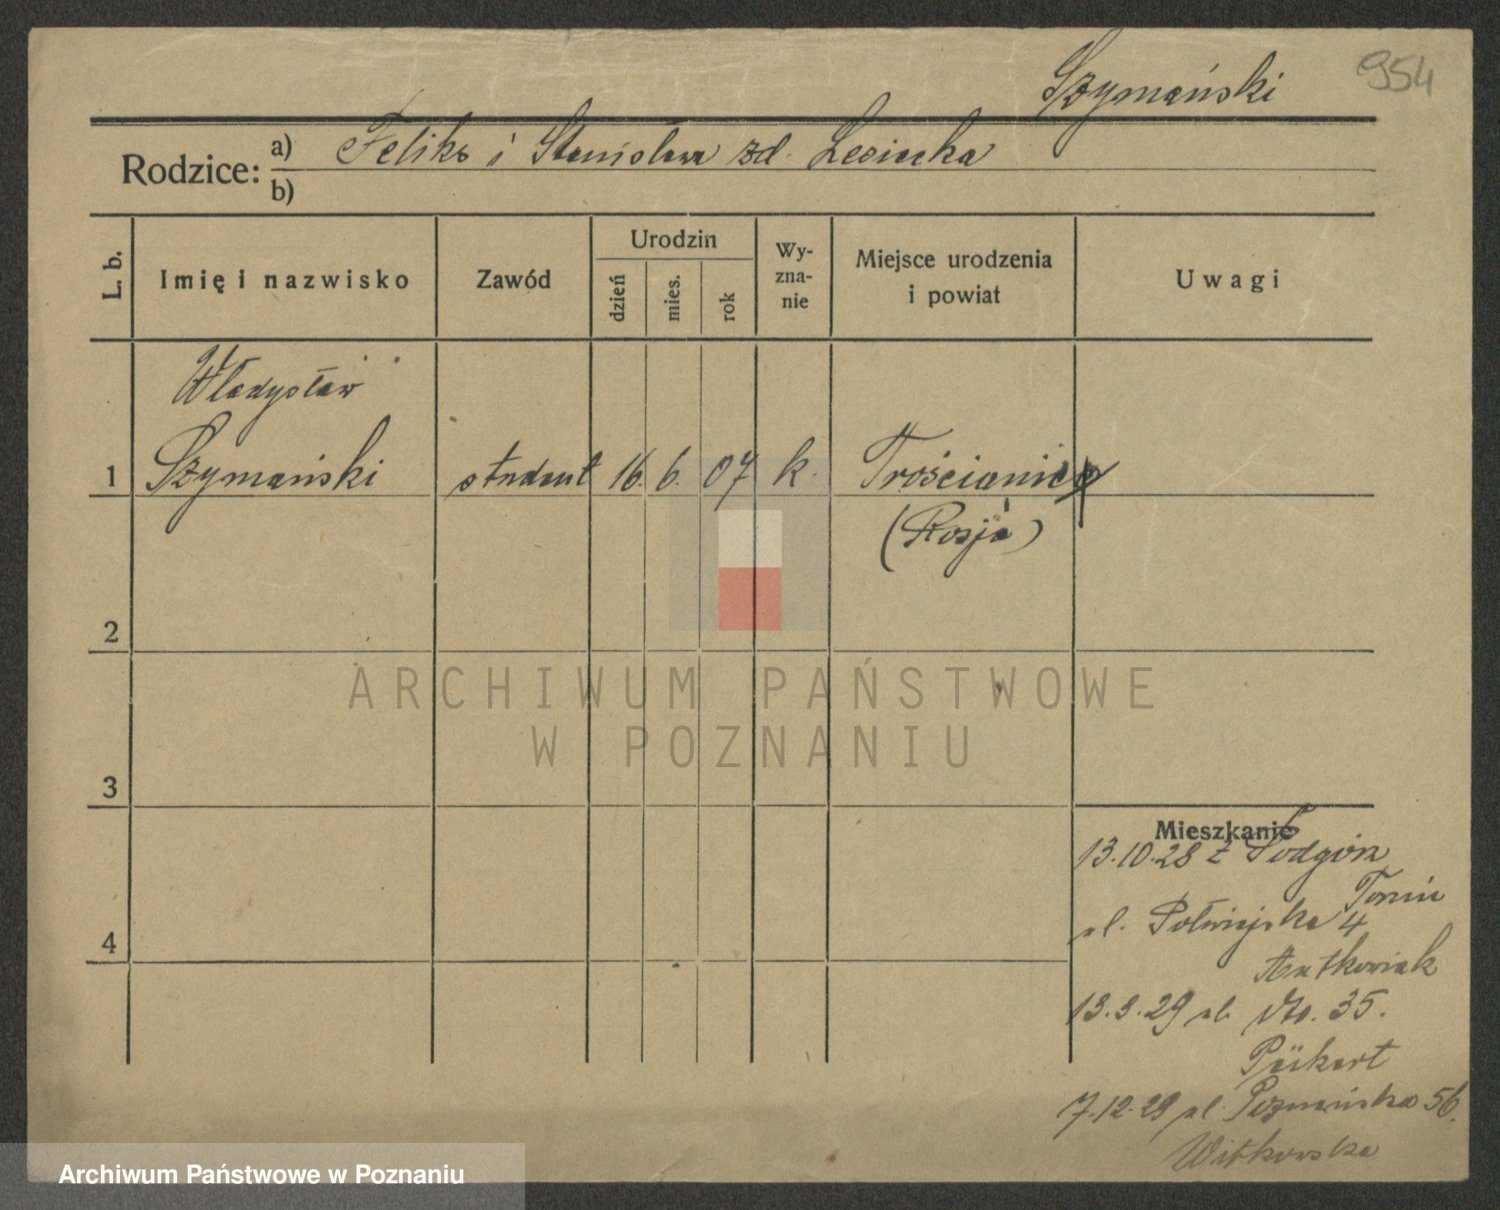 Szymański 954
Rodzice: a) Feliks i Stanisława zd. Lesicka
b)
L. b. Imię i nazwisko Zawód Urodzin dzień mies. rok Wy-zna-nie Miejsce urodzenia i powiat Uwagi
Władysław
1 Szymański student 16. 6. 07 k. Trościaniec
(Rosja)
2
ARCHIWUM PAŃSTWOWE
W POZNANIU
3
Mieszkanie
13.10.28 z Podgórz
Toruń
ul. Półwiejska 4
4
Antkowiak
13.3.29 ul. 35.
Peikert
7.12.29 ul. Poznańska 56.
Witkowska
Archiwum Państwowe w Poznaniu